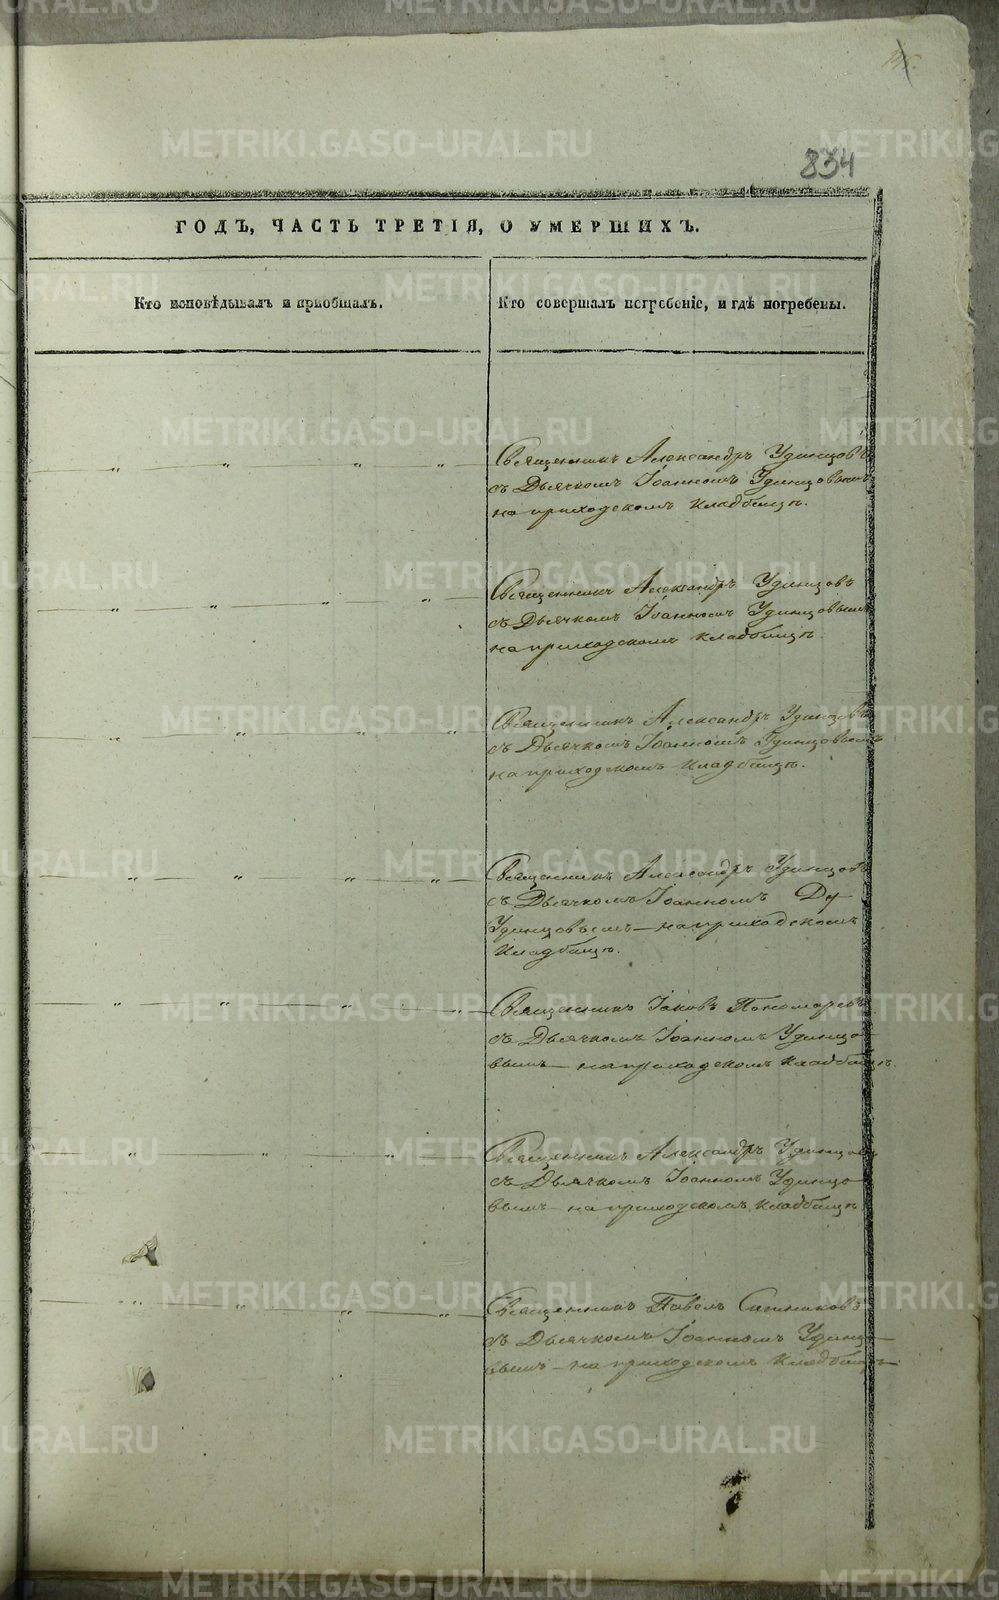 834
ГОДЪ, ЧАСТЬ ТРЕТІЯ, О УМЕРШИХЪ.
Кто исповѣдывалъ и пріобщалъ.
Кто совершалъ погребеніе, и гдѣ погребены.
Священникъ Александръ Удинцовъ
съ Дьячкомъ Іоанномъ Удинцовымъ
на приходскомъ кладбищѣ.
Священникъ Александръ Удинцовъ
съ Дьячкомъ Іоанномъ Удинцовымъ
на приходскомъ кладбищѣ.
Священникъ Александръ Удинцовъ
съ Дьячкомъ Іоанномъ Удинцовымъ
на приходскомъ кладбищѣ.
Священникъ Александръ Удинцовъ
съ Дьячкомъ Іоанномъ Ду
Удинцовымъ — на приходскомъ
кладбищѣ.
Священникъ Іаковъ Пономаревъ
съ Дьячкомъ Іоанномъ Удинцо-
вымъ — на приходскомъ кладбищѣ.
Священникъ Александръ Удинцовъ
съ Дьячкомъ Іоанномъ Удинцо-
вымъ — на приходскомъ кладбищѣ
Священникъ Павелъ Ситниковъ
съ Дьячкомъ Іоанномъ Удинцо-
вымъ — на приходскомъ кладбищѣ
METRIKI.GASO-URAL.RU